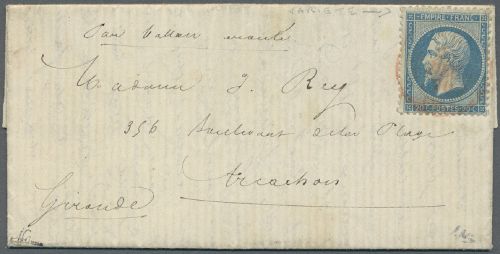 VARIETE →
EMPIRE FRANC
20 C POSTES 20 C
Par Ballon monté
Madame J. Rey
356 Boulevard de la Plage
Arcachon
Gironde